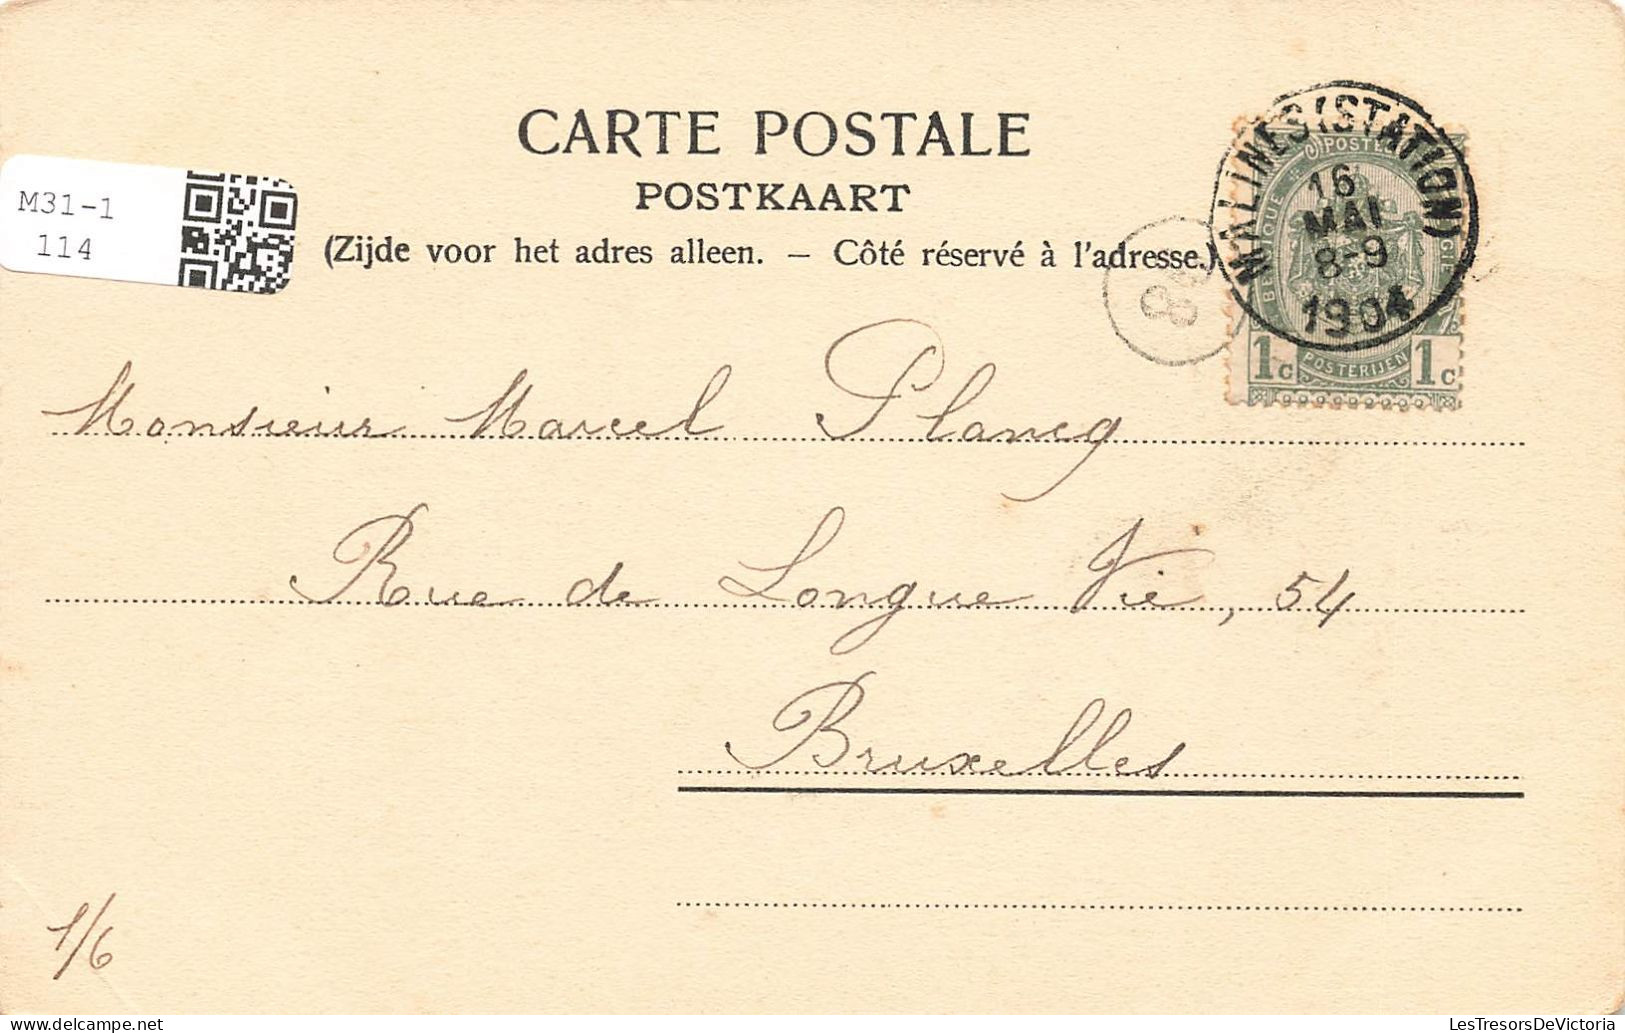 CARTE POSTALE
POSTKAART
(Zijde voor het adres alleen. — Côté réservé à l'adresse.)
M31-1
114
MALINES (STATION)
16
MAI
8-9
1904
POSTE
BELGIQUE
1c POSTERIJEN 1c
Monsieur Marcel Plancq
Rue de Longue Vie, 54
Bruxelles
1/6
LesTresorsDeVictoria